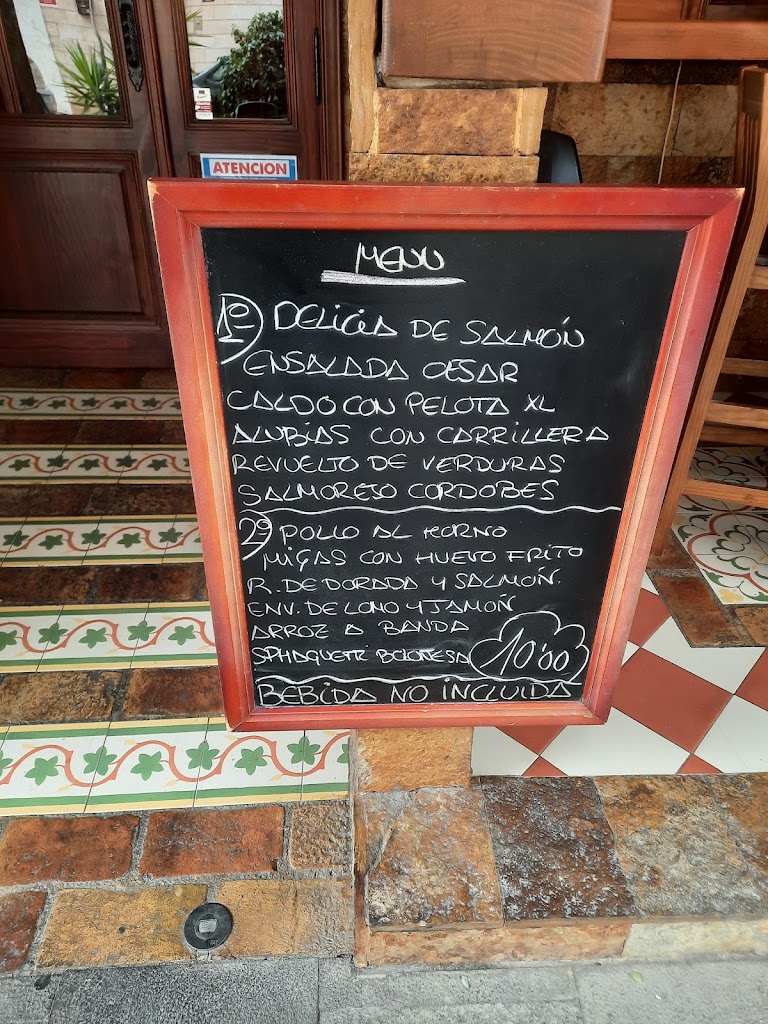 ATENCION
MENU
1º DELICIA DE SALMÓN
ENSALADA CESAR
CALDO CON PELOTA XL
ALUBIAS CON CARRILLERA
REVUELTO DE VERDURAS
SALMOREJO CORDOBES
2º POLLO AL HORNO
MIGAS CON HUEVO FRITO
R. DE DORADA Y SALMOÑ.
ENV. DE LOMO Y JAMOÑ
ARROZ A BANDA
SPHAGUETTI BOLOÑESA 10'00
BEBIDA NO INCLUIDA